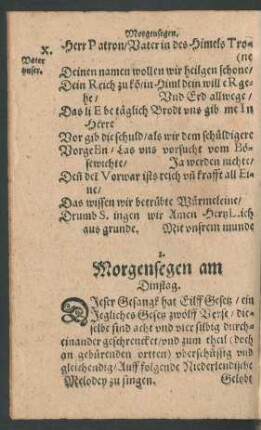 Morgensegen.
X.
Vater
vnser.
Herr Patron/Vater in des Himels Tro-
(ne
Deinen namen wollen wir heilgen schone/
Dein Reich zu kö/in Himl dein will eRge-
he/ Vnd Erd allwege/
Das li Ebe täglich Brodt vns gib me In
Herre
Vor gib die schuld/als wir dem schüldigere
VorgeBn/Las vns vorsucht vom Bö-
sewichte/ Ja werden nichte/
Deñ der Vorwar ists reich vñ krafft all Ei-
ne/
Das wissen wir betrübte Würmeleine/
Drumb Singen wir Amen
aus grunde. Mit vnsrem munde
2.
Morgensegen am
Dinstag.
Dieser Gesangk hat Eilff Gesetz/ein
Jegliches Gesetz zwölff Verse/die-
selbe sind acht vnd vier silbig durch-
einander geschrencket/vnd zum theil (doch
an gebürenden ortten) vberschüssig vnd
gleichendig/Auff folgende Niederlendische
Melodey zu singen. Gelobt